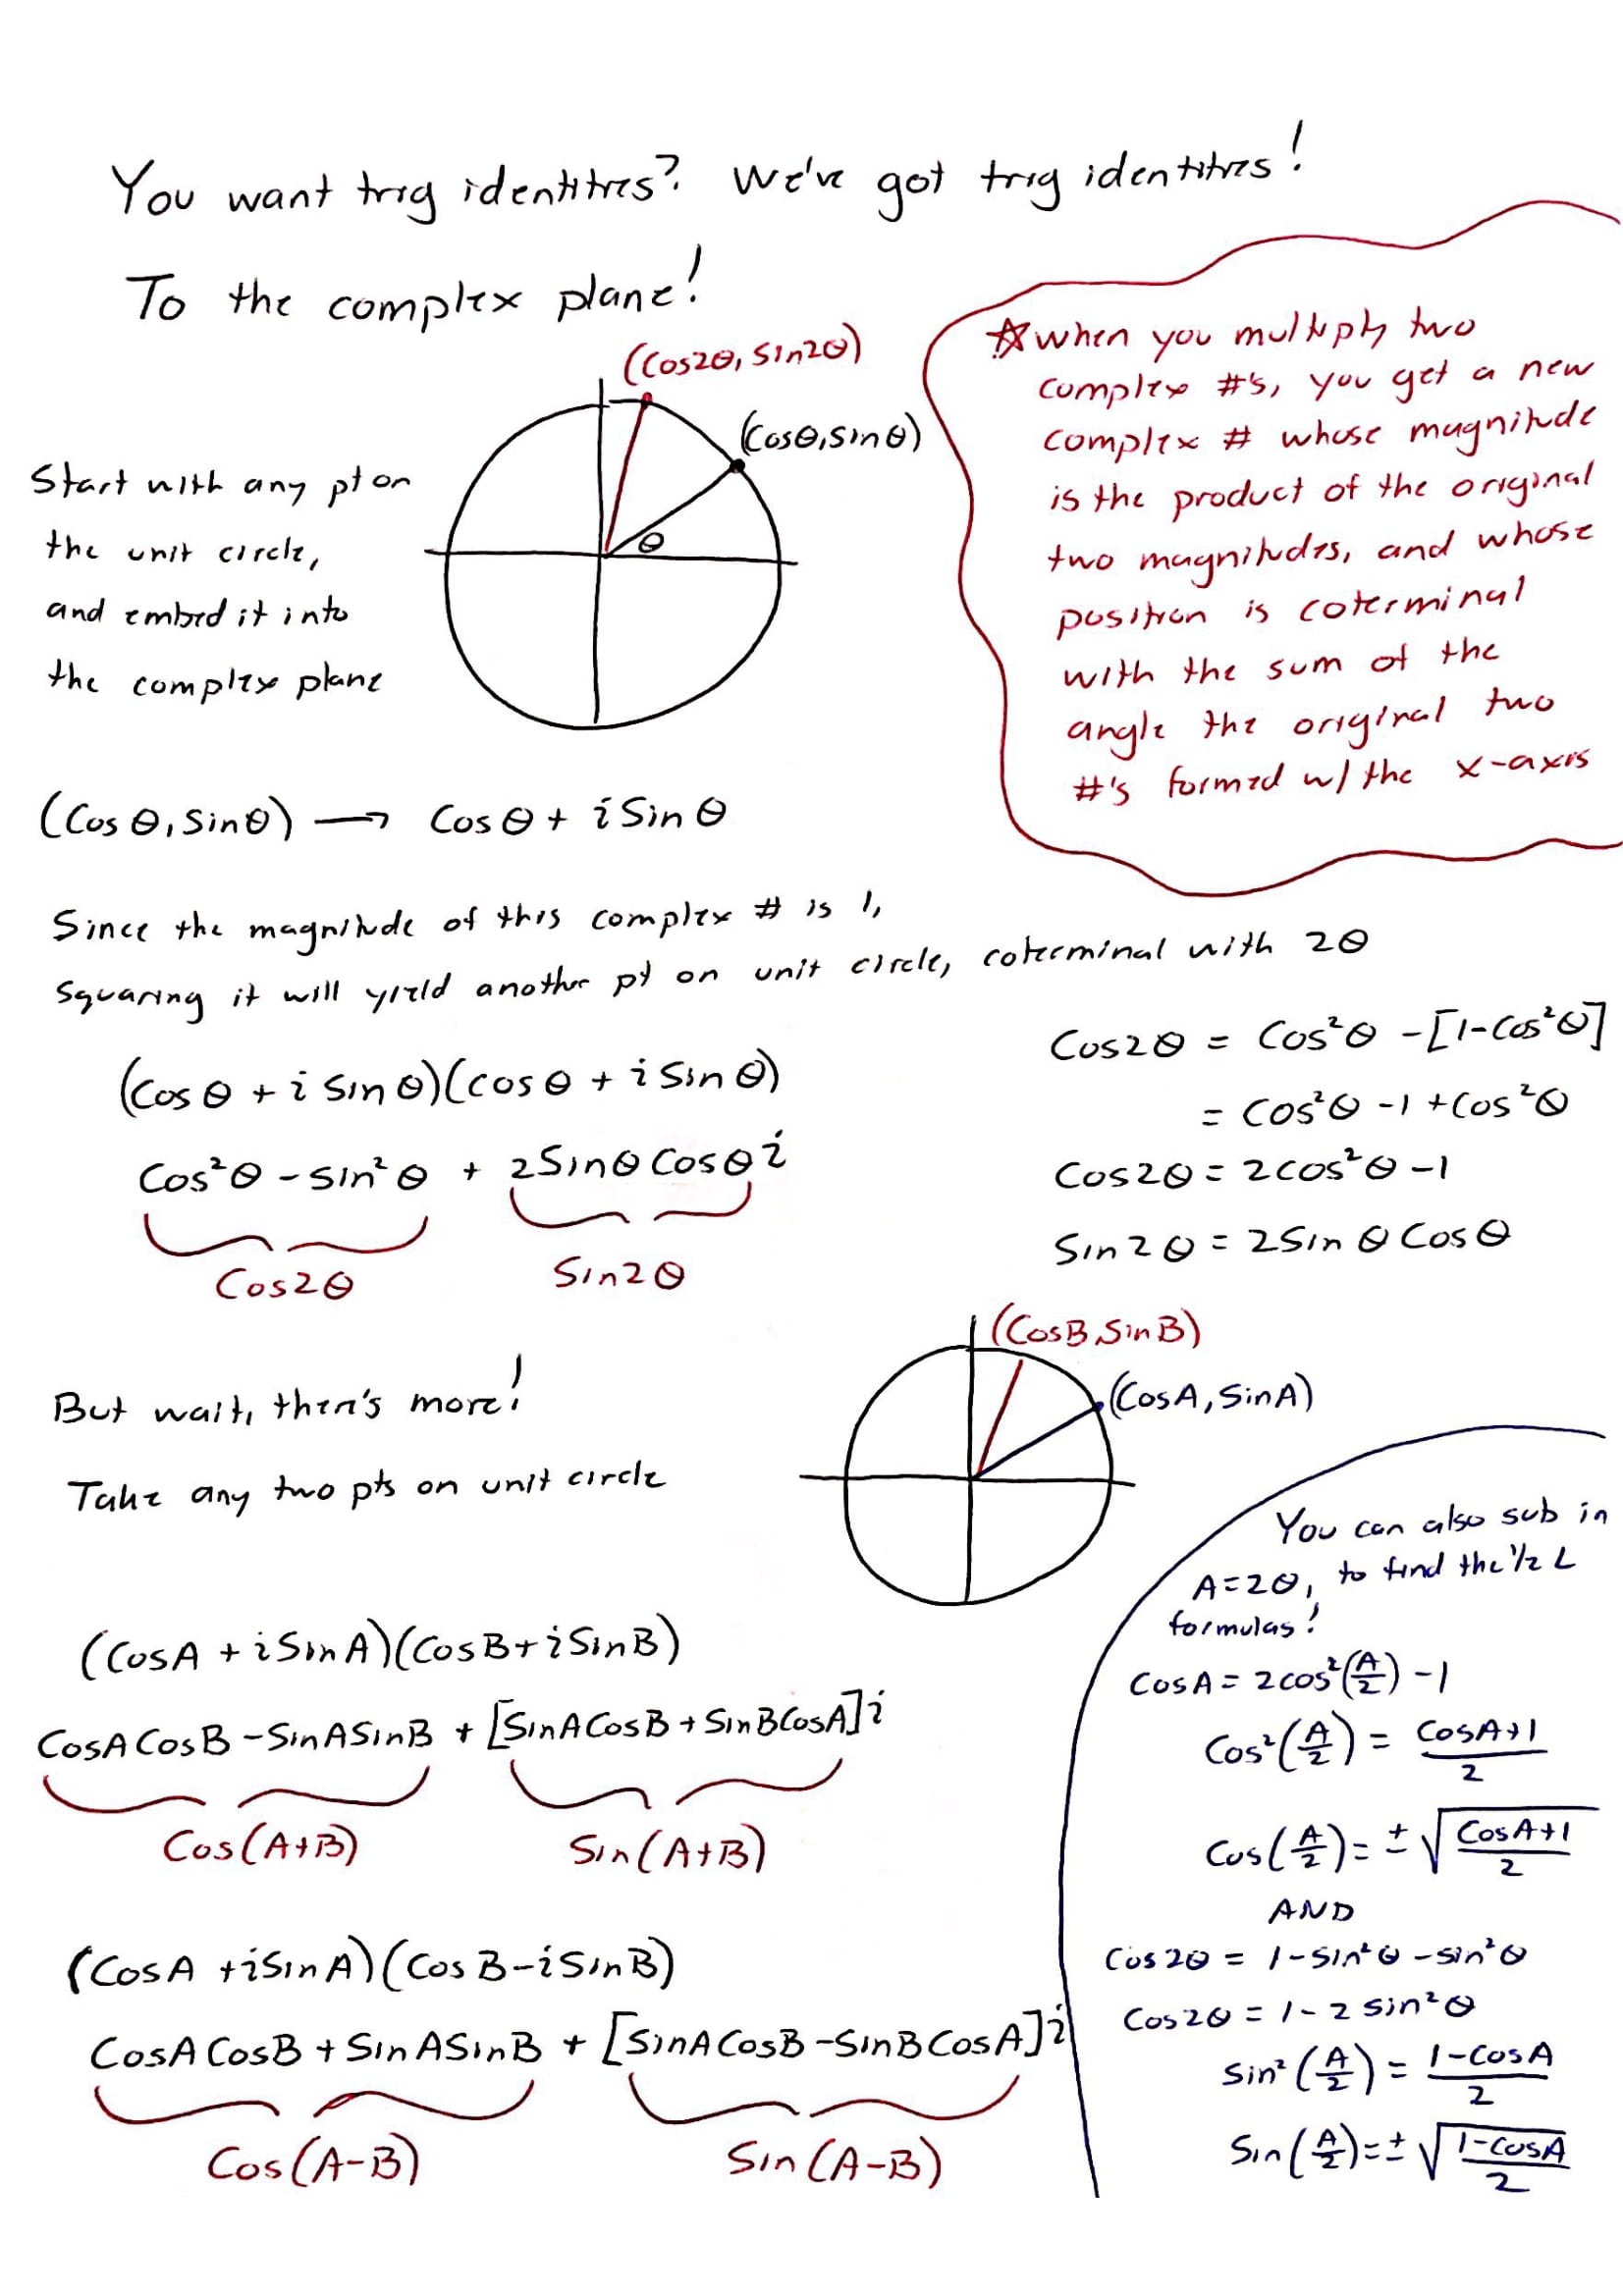 You want trig identities? We've got trig identities!
To the complex plane!
(cos2θ, sin2θ)
(cosθ, sinθ)
θ
Start with any pt on
the unit circle,
and embed it into
the complex plane
☆ when you multiply two
complex #'s, you get a new
complex # whose magnitude
is the product of the original
two magnitudes, and whose
position is coterminal
with the sum of the
angle the original two
#'s formed w/ the x-axis
(cosθ, sinθ) → cosθ + i sinθ
Since the magnitude of this complex # is 1,
squaring it will yield another pt on unit circle, coterminal with 2θ
(cosθ + i sinθ)(cosθ + i sinθ)
cos²θ - sin²θ + 2sinθ cosθ i
cos2θ
sin2θ
cos2θ = cos²θ - [1-cos²θ]
= cos²θ - 1 + cos²θ
cos2θ = 2cos²θ - 1
sin2θ = 2sinθ cosθ
But wait, there's more!
Take any two pts on unit circle
(cosB, sinB)
(cosA, sinA)
(cosA + i sinA)(cosB + i sinB)
cosA cosB - sinA sinB + [sinA cosB + sinB cosA] i
cos(A+B)
sin(A+B)
(cosA + i sinA)(cosB - i sinB)
cosA cosB + sinA sinB + [sinA cosB - sinB cosA] i
cos(A-B)
sin(A-B)
You can also sub in
A=2θ, to find the ½ ∠
formulas!
cosA = 2cos²(A/2) - 1
cos²(A/2) = (cosA+1)/2
cos(A/2) = ±√((cosA+1)/2)
AND
cos2θ = 1 - sin²θ - sin²θ
cos2θ = 1 - 2sin²θ
sin²(A/2) = (1-cosA)/2
sin(A/2) = ±√((1-cosA)/2)